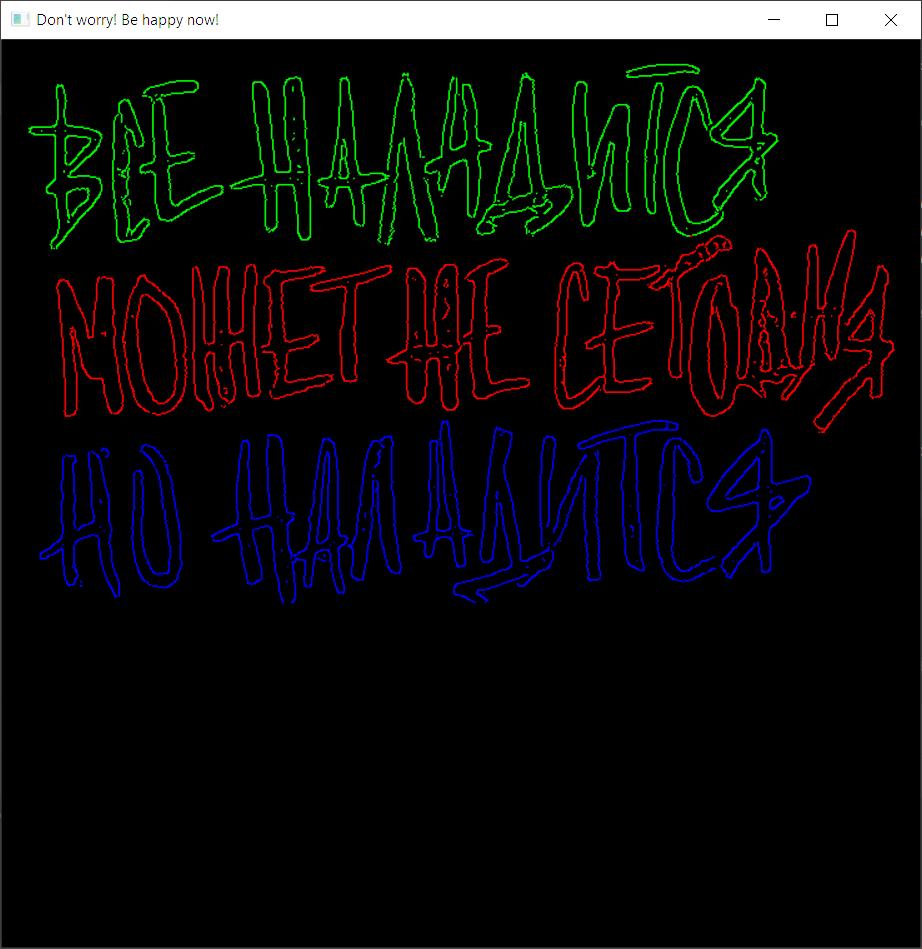 Don't worry! Be happy now!
ВСЕ НАЛАДИТСЯ
МОЖЕТ НЕ СЕГОДНЯ
НО НАЛАДИТСЯ